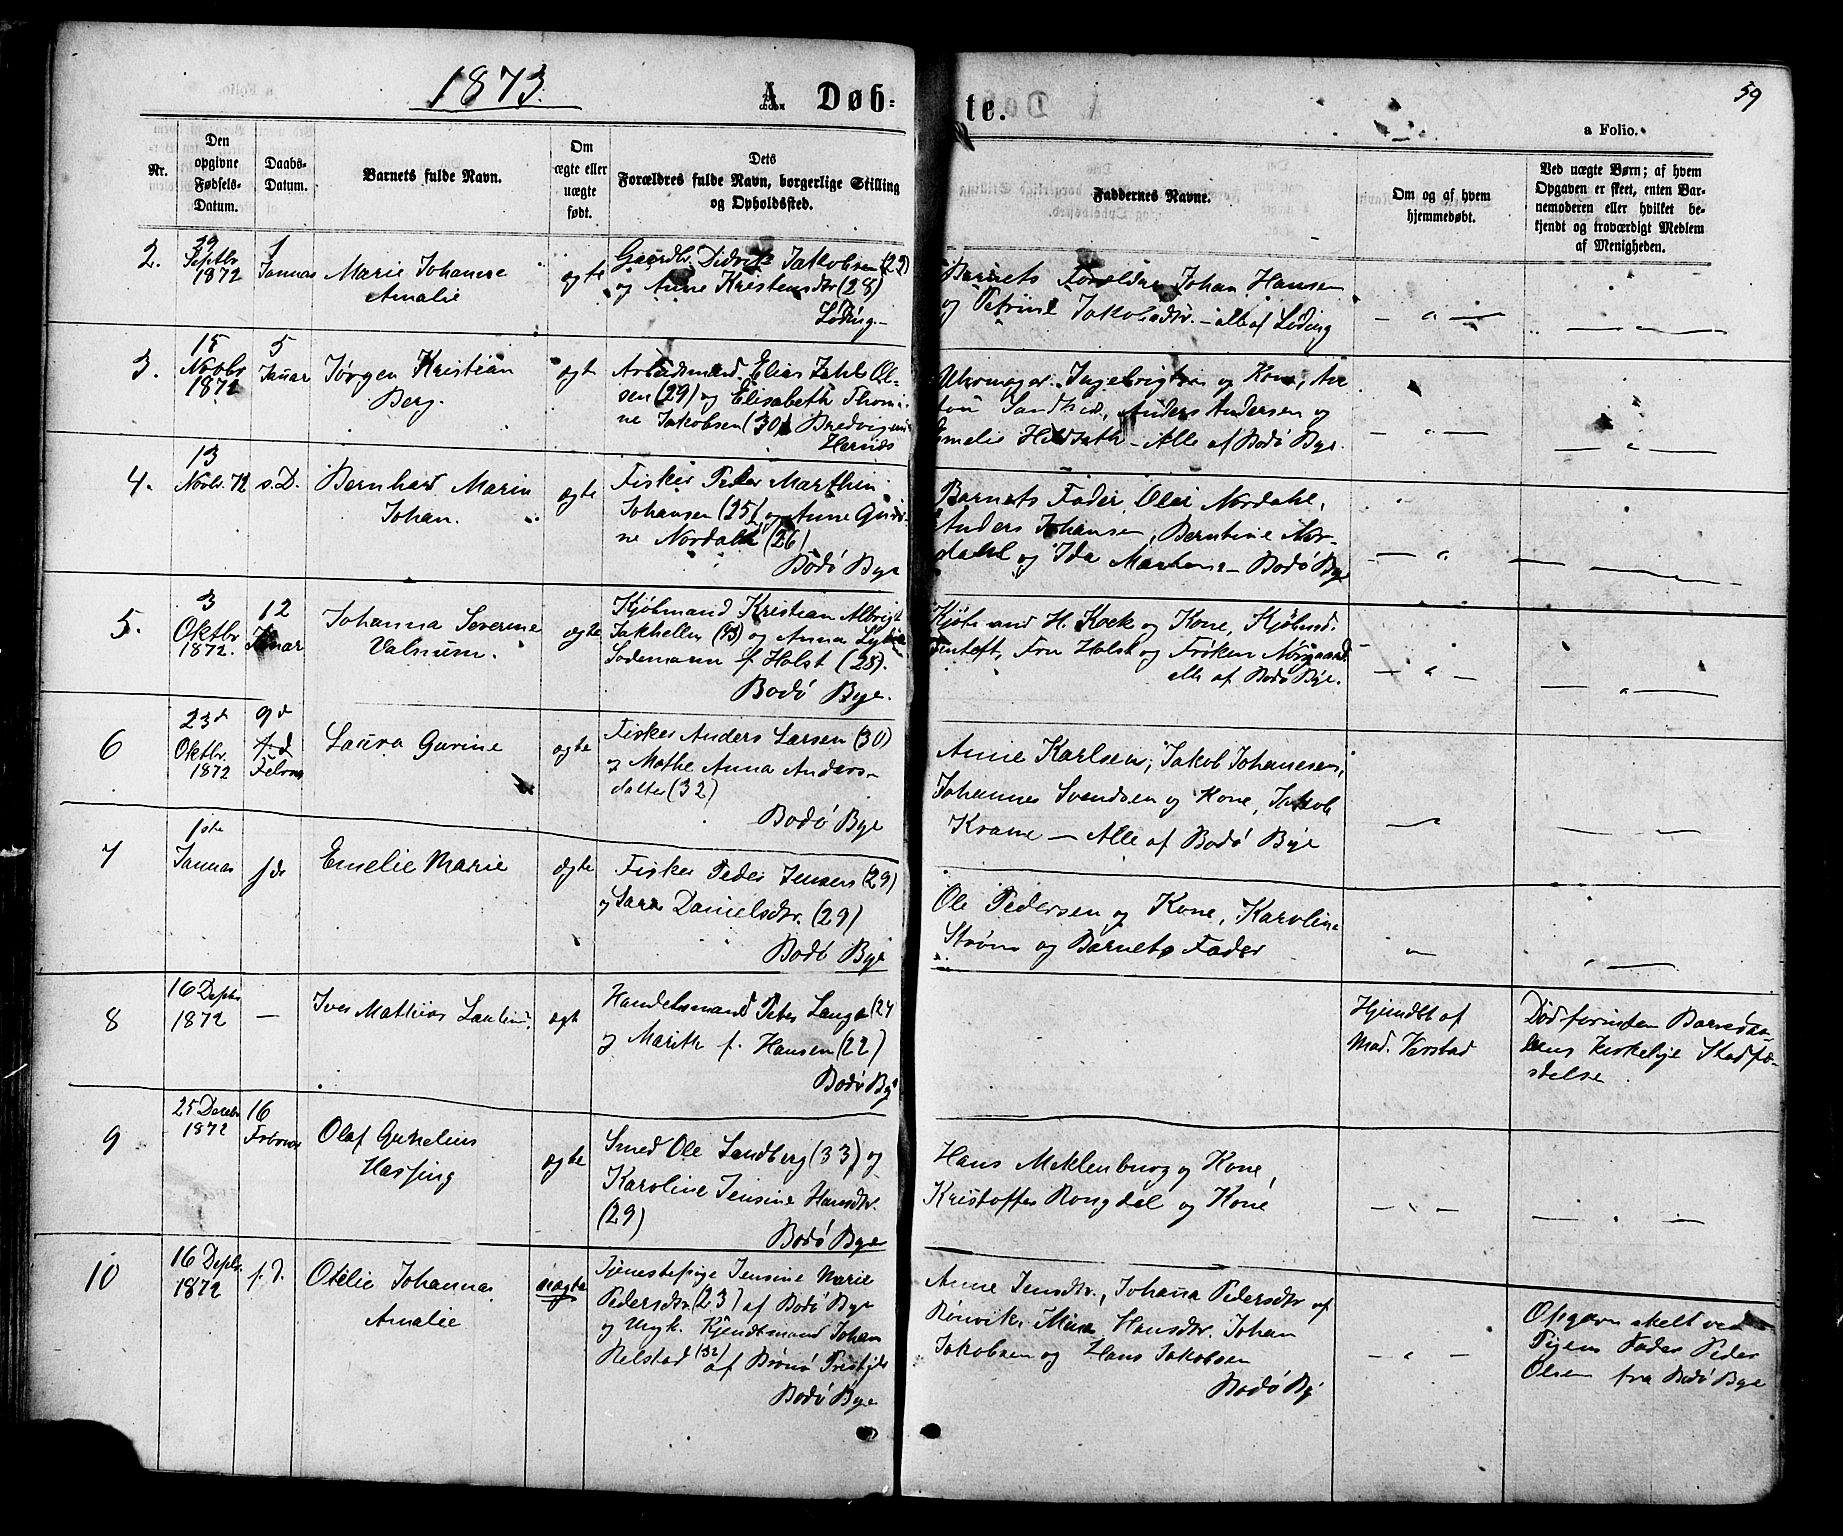 1873.
A. Døb-
te.
59
a Folio.
Nr.
Den
opgivne
Fødsels-
Datum.
Daabs-
Datum.
Barnets fulde Navn.
Om
ægte eller
uægte
født.
Dets
Forældres fulde Navn, borgerlige Stilling
og Opholdssted.
Faddernes Navne.
Om og af hvem
hjemmedøbt.
Ved uægte Børn; af hvem
Opgaven er skeet, enten Bar-
nemoderen eller hvilket be-
kjendt og troværdigt Medlem
af Menigheden.
2.
29
Septbr
1872
1
Januar
Marie Johanne
Amalie
ægte
Gaardbr. Didrik Jakobsen (29)
og Anne Kristensdtr (28)
Løding
Barnets Forældre, Johan Hansen
og Petrine Jakobsdtr. – alle af Løding
3.
15
Novbr
1872
5
Januar
Jørgen Kristian
Berg.
ægte
Arbeidsmand Elias Zahl Ol-
sen (29) og Elisabeth Thomi-
ne Jakobsen (30)
Hernæs
Uhrmager Ingebrigtsen og Kone,
Anders Andersen og
Emelie – Alle af Bodø Bye.
4.
13
Novbr. 72
s. D.
Bernhard Marin
Johan.
ægte
Fisker Peder Marthin
Johansen (25) og Anne Guri-
ne Nordahl (26)
Bodø Bye
Barnets Fader, Olai Nordahl,
Anders Johansen, Berntine Nor-
dahl og Ida Martens – Bodø Bye
5.
3
Oktbr
1872.
12
Januar
Johanna Severine
Valnum.
ægte
Kjøbmand Kristian Albrigt
Jakhelln (43) og Anna Lydia
Sodemann f. Holst (28).
Bodø Bye.
Kjøbmand H. Kock og Kone, Kjøbmd.
Jentoft, Fru Holst og Frøken Nørgaard
alle af Bodø Bye.
6
23d
Oktbr.
1872
9d
Februar
Laura Gurine
ægte
Fisker Anders Larsen (30)
og Mathe Anna Anders-
datter (32)
Bodø Bye
Anne Karlsen, Jakob Johanesen,
Johannes Svendsen og Kone, Jakob
Krane – Alle af Bodø Bye
7
1ste
Januar
f. d.
Emelie Marie
ægte
Fisker Peder Jensen (29)
og Sara Danielsdtr. (29)
Bodø Bye
Ole Pedersen og Kone, Karoline
Strøm og Barnets Fader
8
16 Septbr
1872
—
Iver Mathias
ægt
Handelsmand Peter Lange (24
og Marith f. Hansen (22)
Bodø By
Hjemdbt af
Mad. Verstad
Død forinden Barnedaa-
bens kirkelige Stadfæ-
stelse
9
25 Decebr
1872
16
Februar
Olaf Cornelius
Hassing
ægte
Smed Ole Sandberg (33) og
Karoline Jensine Hansdtr.
(29)
Bodø Bye
Hans Meklenburg og Kone,
Kristoffer Rongdal og Kone
10
16 Septr.
1872
f. D.
Otelie Johanna
Amalie
uægte
Tjenestepige Jensine Marie
Pedersdtr. (23) af Bodø Bye
og Ungk. Kjendtmand Johan
Relstad (32) af Brønø Prestgjd
Bodø Bye
Anne Jensdtr., Johana Pedersdtr af
Rønvik, Mina Hansdtr. Johan
Jakobsen og Hans Jakobsen
Bodø By
Opgaven skelt ved
Pigens Fader Peder
Olsen fra Bodø Bye